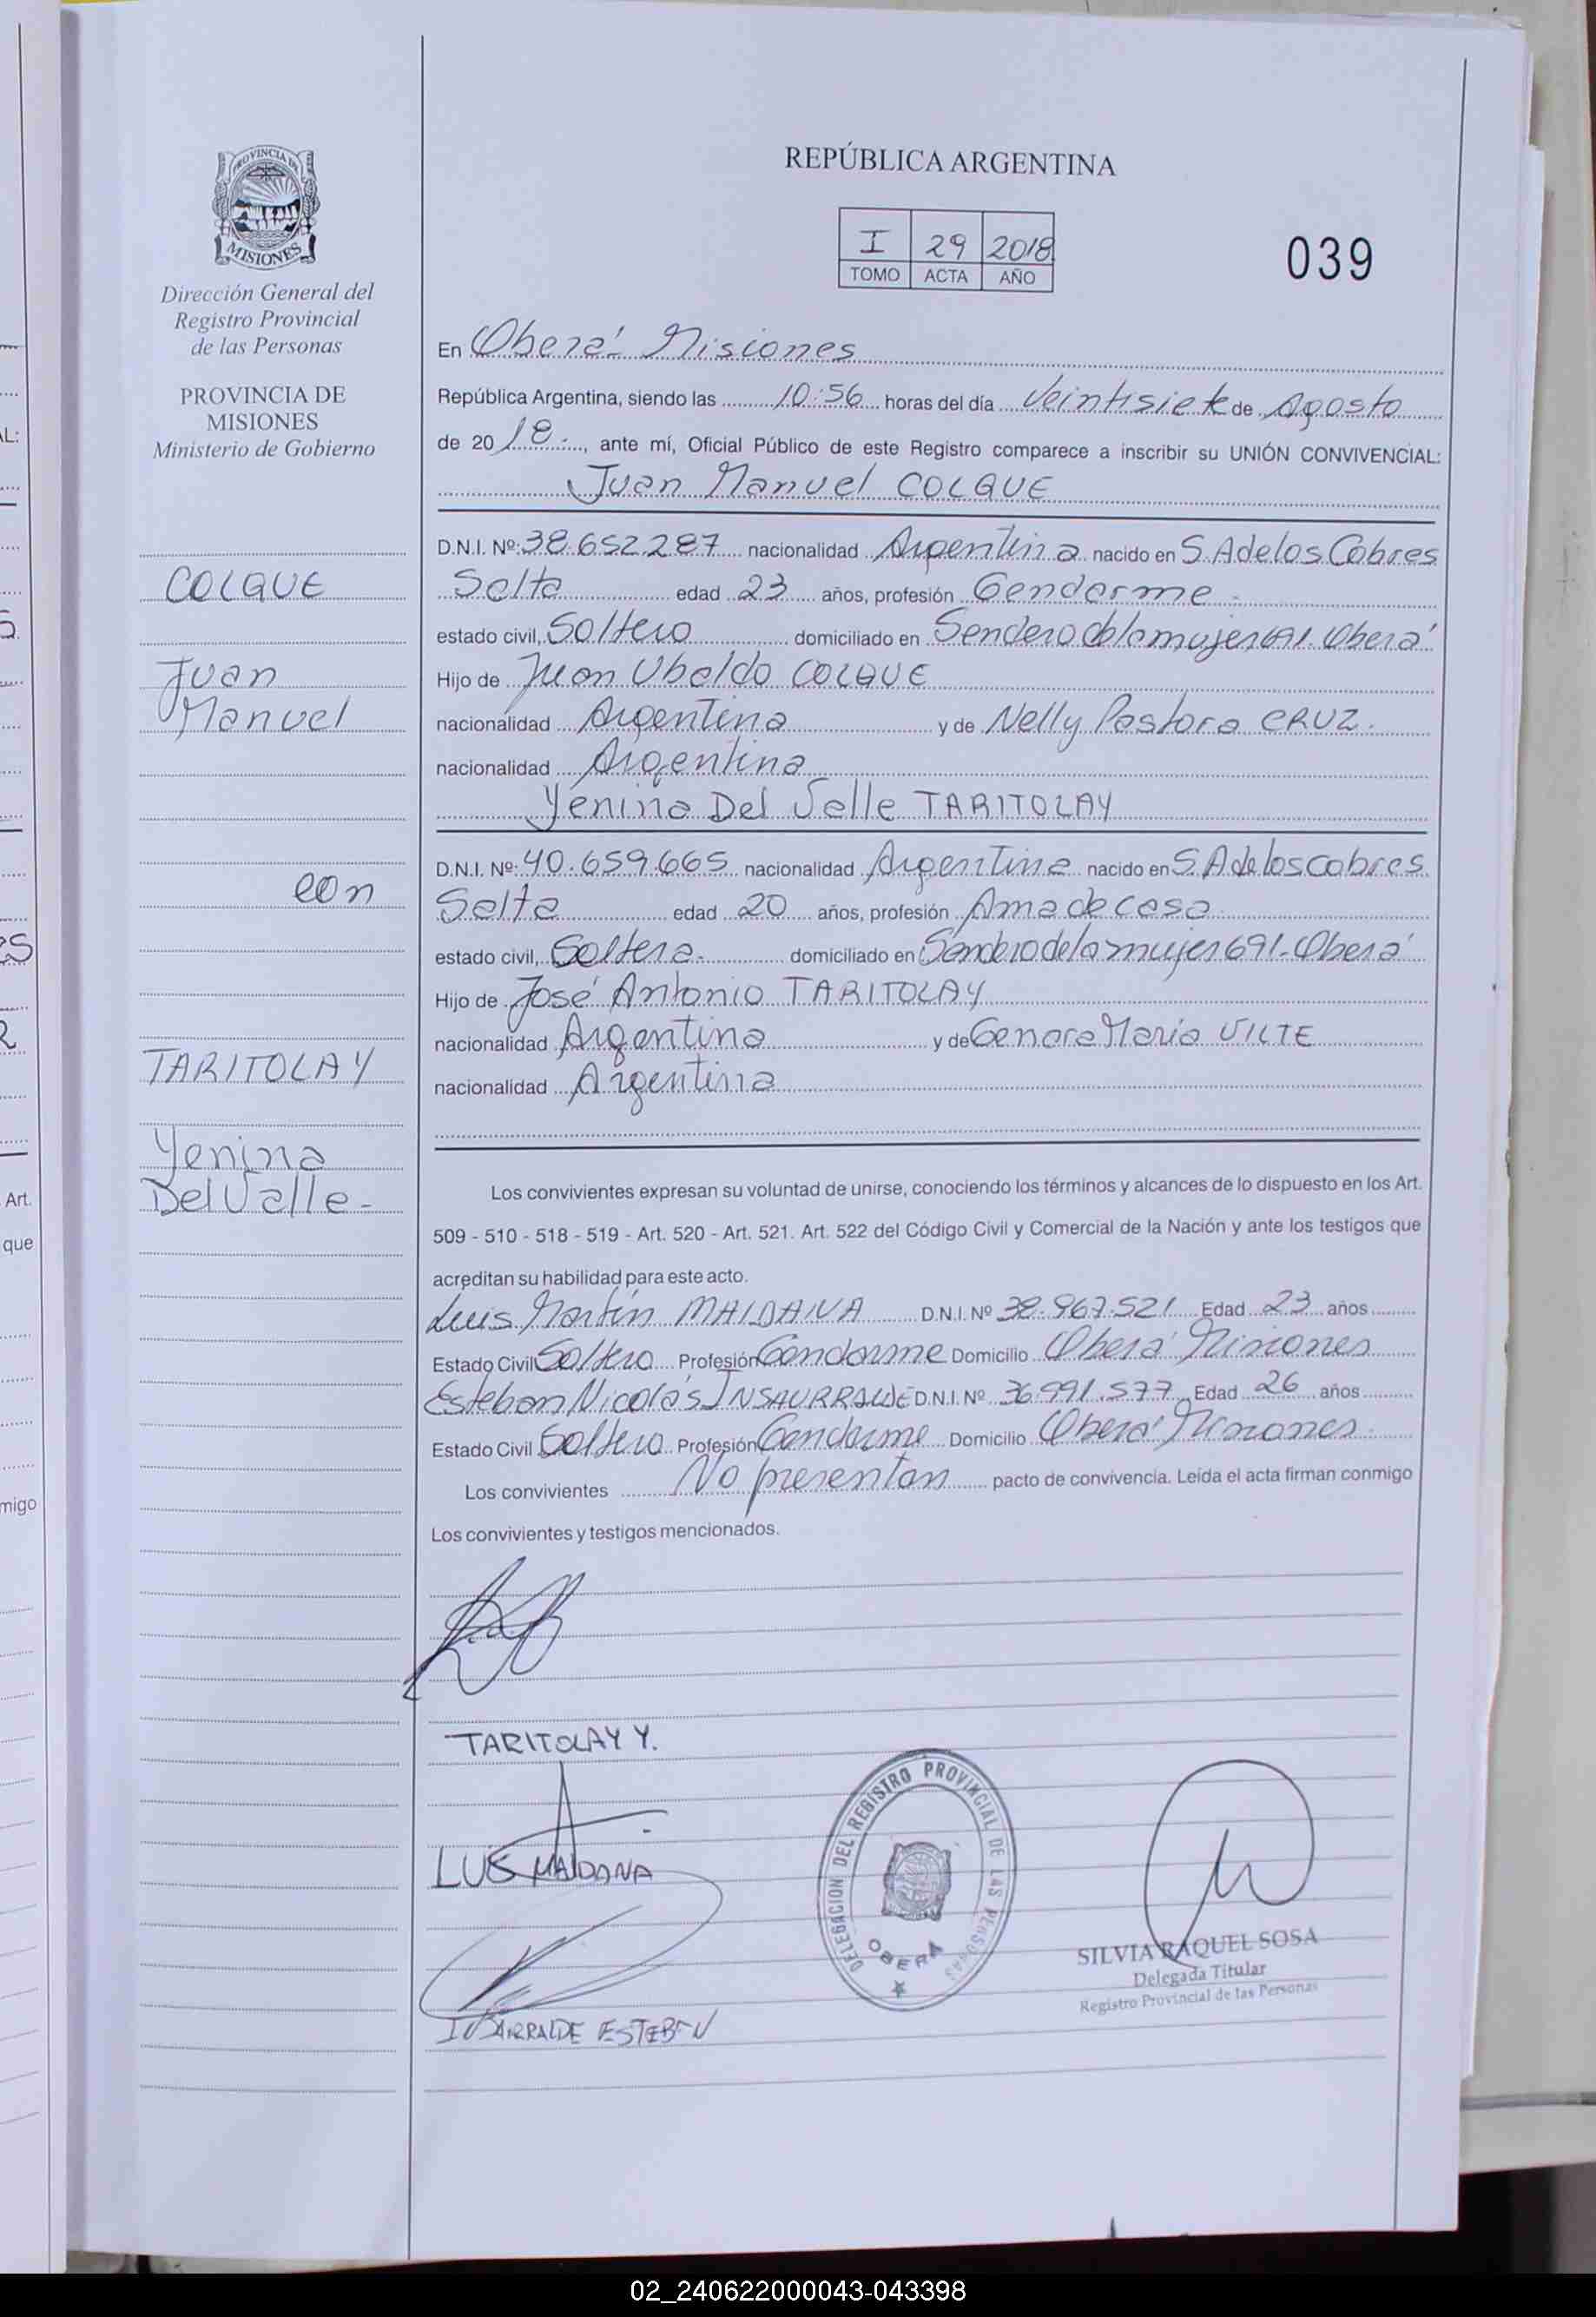 PROVINCIA DE
MISIONES
Dirección General del
Registro Provincial
de las Personas
PROVINCIA DE
MISIONES
Ministerio de Gobierno
COLQUE
Juan
Manuel
con
TARITOLAY
Yenina
Del Valle -
REPÚBLICA ARGENTINA
I 29 2018
TOMO ACTA AÑO
039
En Oberá Misiones
República Argentina, siendo las 10:56 horas del día Veintisiete de Agosto
de 2018.-, ante mí, Oficial Público de este Registro comparece a inscribir su UNIÓN CONVIVENCIAL:
Juan Manuel COLQUE
D.N.I. Nº: 38.652.287 nacionalidad Argentina nacido en S.A de los Cobres
Salta edad 23 años, profesión Gendarme -
estado civil, Soltero domiciliado en Sendero de la mujer 691. Oberá
Hijo de Juan Ubaldo COLQUE
nacionalidad Argentina y de Nelly Pastora CRUZ.
nacionalidad Argentina
Yenina Del Valle TARITOLAY
D.N.I. Nº: 40.659.665 nacionalidad Argentina nacido en S.A de los cobres
Salta edad 20 años, profesión Ama de casa
estado civil, Soltera. domiciliado en Sendero de la mujer 691-Oberá
Hijo de José Antonio TARITOLAY
nacionalidad Argentina y de Genara María VILTE
nacionalidad Argentina
Los convivientes expresan su voluntad de unirse, conociendo los términos y alcances de lo dispuesto en los Art.
509 - 510 - 518 - 519 - Art. 520 - Art. 521. Art. 522 del Código Civil y Comercial de la Nación y ante los testigos que
acreditan su habilidad para este acto.
Luis Martín MAIDANA D.N.I. Nº 38.967.521 Edad 23 años
Estado Civil Soltero Profesión Gendarme Domicilio Oberá Misiones
Esteban Nicolás INSAURRALDE D.N.I. Nº 36.991.577 Edad 26 años
Estado Civil Soltero Profesión Gendarme Domicilio Oberá Misiones.
Los convivientes No presentan pacto de convivencia. Leída el acta firman conmigo
Los convivientes y testigos mencionados.
TARITOLAY Y.
LUIS MAIDANA
DELEGACION DEL REGISTRO PROVINCIAL DE LAS PERSONAS
OBERÁ
SILVIA RAQUEL SOSA
Delegada Titular
Registro Provincial de las Personas
ESTEBAN
Art.
que
migo
02_240622000043-043398